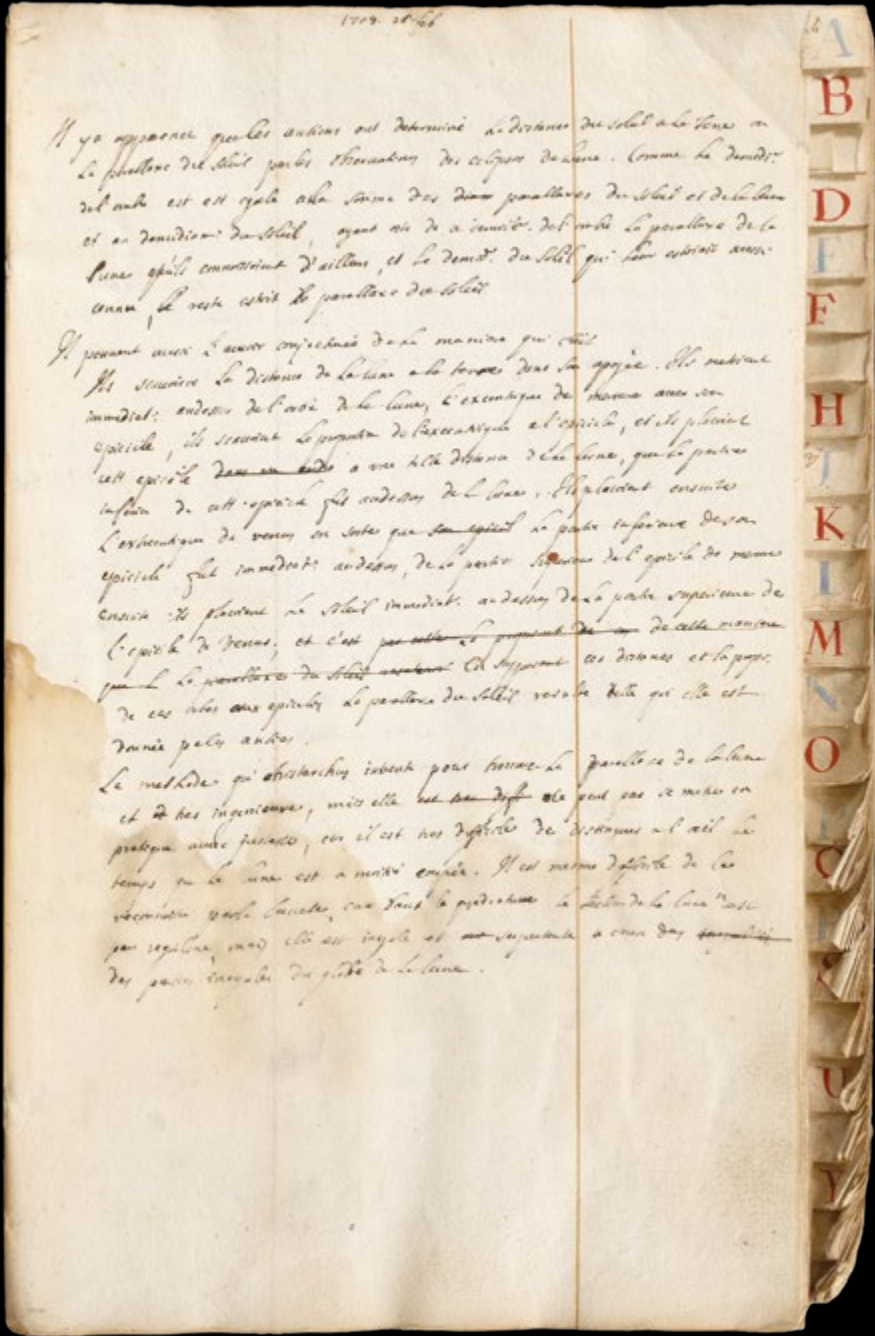 1708. 28 feb
A
B
Il y a apparence que les antiens ont determiné la distance du Soleil a la Terre ou
la parallaxe du Soleil par les observations des eclipses de Lune. Comme le demidr.
D
de l'ombre est est egale a la somme des parallaxes du Soleil et de la Lune
et au demidiam: du Soleil, ayant oté de a de l'ombre la parallaxe de la
E
Lune qu'ils connoissoient d'ailleurs, et le demidr. du Soleil qui leur estoient aussi
connu, le reste estoit la parallaxe du Soleil
F
Il peuvent aussi l'avoir conjecturée de la maniere qui suit
Ils scavoient la distance de la Lune a la terre dans son apogée. Ils mettoient
immediat: audessus de l'orbe de la Lune, l'excentrique de mercure avec son
H
epicicle, ils scavoient la proportion de l'excentrique a l'epicicle, et ils placoient
cett epicicle dans un a une telle distance de la Lune, que la partie
I
inferieure de cett epicicle fut audessus de la Lune. Ils placoient ensuite
L'excentrique de venus en sorte que son epicicle la partie inferieure de son
K
epicicle fut immediat: audessus de la partie superieure de l'epicicle de mercure
ensuite ils placoient le Soleil immediat. audessus de la partie superieure de
L
l'epicicle de Venus, et c'est par cette de cette maniere
M
que la parallaxe du Soleil En supposant ces distances et la prop.
de ces orbes aux epicicles la parallaxe du Soleil resulte telle qu'elle est
N
donnée par les antiens.
O
La methode qu'Aristarchus inventa pour trouver la parallaxe de la Lune
et est tres ingenieuse, mais elle est tres diff ne peut pas se mettre en
pratique avec justesse, car il est tres difficile de distinguer a l'oeil le
temps ou la Lune est a moitié coupée. Il est mesme difficile de le
reconnoitre par la lunete, car dans la quadrature la section de la Lune n'est
pas reguliere, mais elle est inegale et serpentante a cause des inegalités
S
des parties inegales du globe de la Lune.
U
Y